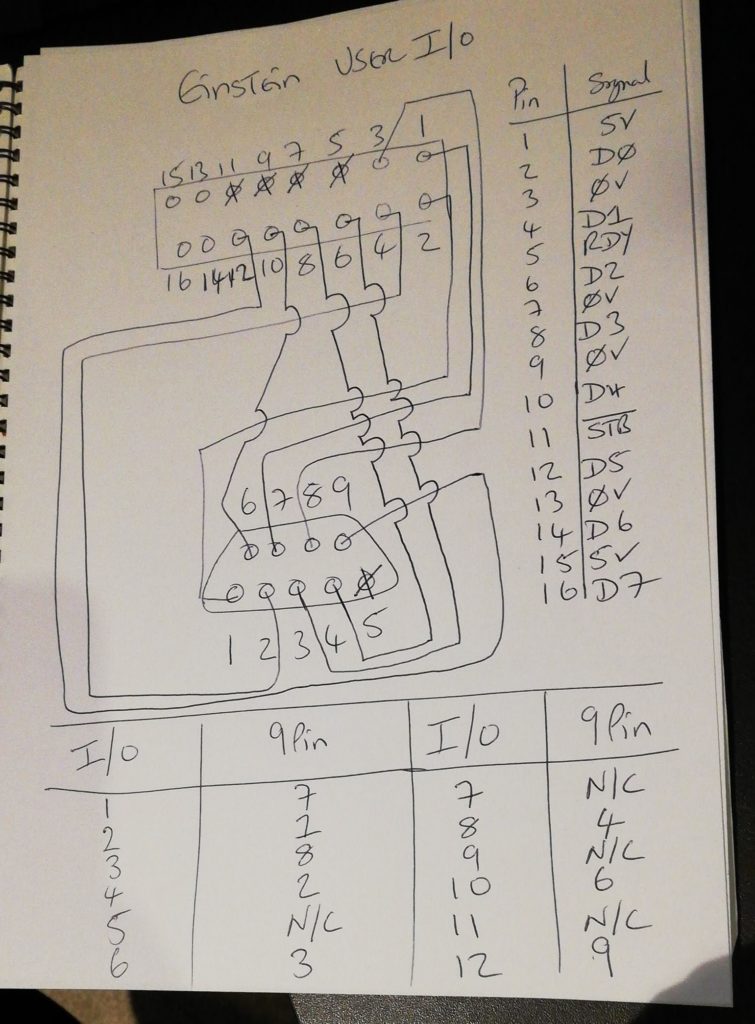 Einstein USER I/O
15 13 11 9 7 5 3 1
16 14 12 10 8 6 4 2
6 7 8 9
1 2 3 4 5
Pin Signal
1 5V
2 DØ
3 ØV
4 D1
5 RDY
6 D2
7 ØV
8 D3
9 ØV
10 D4
11 STB
12 D5
13 ØV
14 D6
15 5V
16 D7
I/O 9Pin I/O 9Pin
1 7 7 N/C
2 1 8 4
3 8 9 N/C
4 2 10 6
5 N/C 11 N/C
6 3 12 9